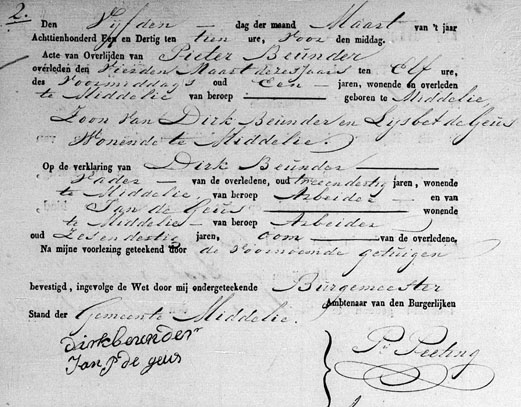 2.
Den Vijfden dag der maand Maart van 't jaar
Achttienhonderd Een en Dertig ten tien ure, Voor den middag.
Acte van Overlijden van Pieter Beunder
overleden den Vierden Maart dezes jaars ten Elf ure,
des Voormiddags oud Een jaren, wonende en overleden
te Middelie van beroep geboren te Middelie
Zoon van Dirk Beunder en Lysbet de Geus
Wonende te Middelie.
Op de verklaring van Dirk Beunder
Vader van de overledene, oud jaren, wonende
te Middelie van beroep Arbeider en van
Jan de Geus wonende
te Middelie van beroep Arbeider
oud Zesendertig jaren, oom van de overledene.
Na mijne voorlezing geteekend door de Voornoemde getuigen
bevestigd, ingevolge de Wet door mij ondergeteekende Burgemeester
Ambtenaar van den Burgerlijken
Stand der Gemeente Middelie.
Dirk beunder
Jan P. de geus